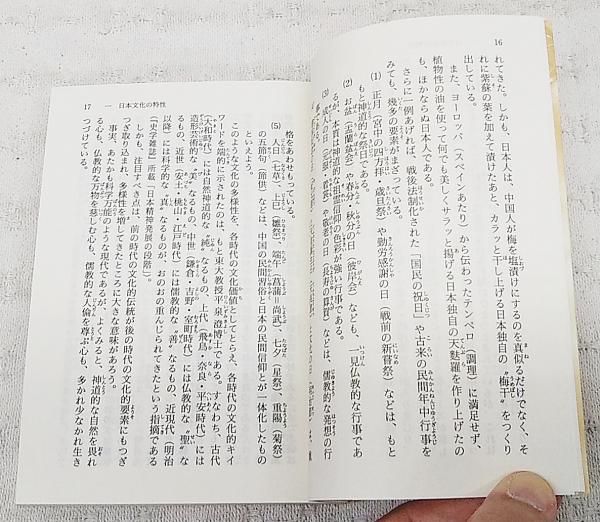 16
れてきた。しかも、日本人は、中国人が梅を塩漬けにするのを真似るだけでなく、そ
れに紫蘇の葉を加えて漬けたあと、カラッと干し上げる日本独自の〝梅干〟をつくり
出している。
また、ヨーロッパ（スペインあたり）から伝わったテンペロ（調理）に満足せず、
植物性の油を使って何でも美しくサラッと揚げる日本独自の天麩羅を作り上げたの
も、ほかならぬ日本人である。
さらに一例あげれば、戦後法制化された「国民の祝日」や古来の民間年中行事を
みても、幾多の要素がまざっている。
(1) 正月（宮中の四方拝、歳旦祭）や勤労感謝の日（戦前の新嘗祭）などは、もと
もと神道的な祭日である。
(2) お盆（盂蘭盆会）や春分・秋分の日（彼岸会）なども、一見仏教的な行事であ
るが、本質は神道的な祖霊信仰の色彩が強い行事である。
(3) 成人の日（元服、着裳）や敬老の日（長寿の算賀）などは、儒教的な発想の行
17 一 日本文化の特性
格をあわせもっている。
(5) 人日（七草）、上巳（雛祭）、端午（菖蒲＝尚武）、七夕（星祭）、重陽（菊祭）
の五節句（節供）などは、中国の民間習俗と日本の民間信仰とが一体化したもの
といえよう。
このような文化の多様性を、各時代の文化価値としてとらえ、各時代の文化的キイ
ワードを端的に示されたのは、もと東大教授平泉澄博士である。すなわち、古代
（大和時代）には自然神道的な〝純〟なるもの、上代（飛鳥・奈良・平安時代）には
造形芸術的な〝美〟なるもの、中世（鎌倉・吉野・室町時代）には仏教的な〝聖〟な
るもの、近世（安土・桃山・江戸時代）には儒教的な〝善〟なるもの、近現代（明治
以降）には科学的な〝真〟なるものが、おのおの重んじられてきたという指摘である
（『史学雑誌』所載「日本精神発展の段階」）。
しかも、注目すべき点は、前の時代の文化的伝統が後の時代の文化的要素にもつぎ
つぎ取り込まれ、多様性を増してきたところに大きな意味があろう。
事実、あたかも科学万能のような現代であるが、よくみると、神道的な自然を畏れ
る心も、仏教的な万物を慈しむ心も、儒教的な人倫を尊ぶ心も、多かれ少なかれ生き
つづけている。